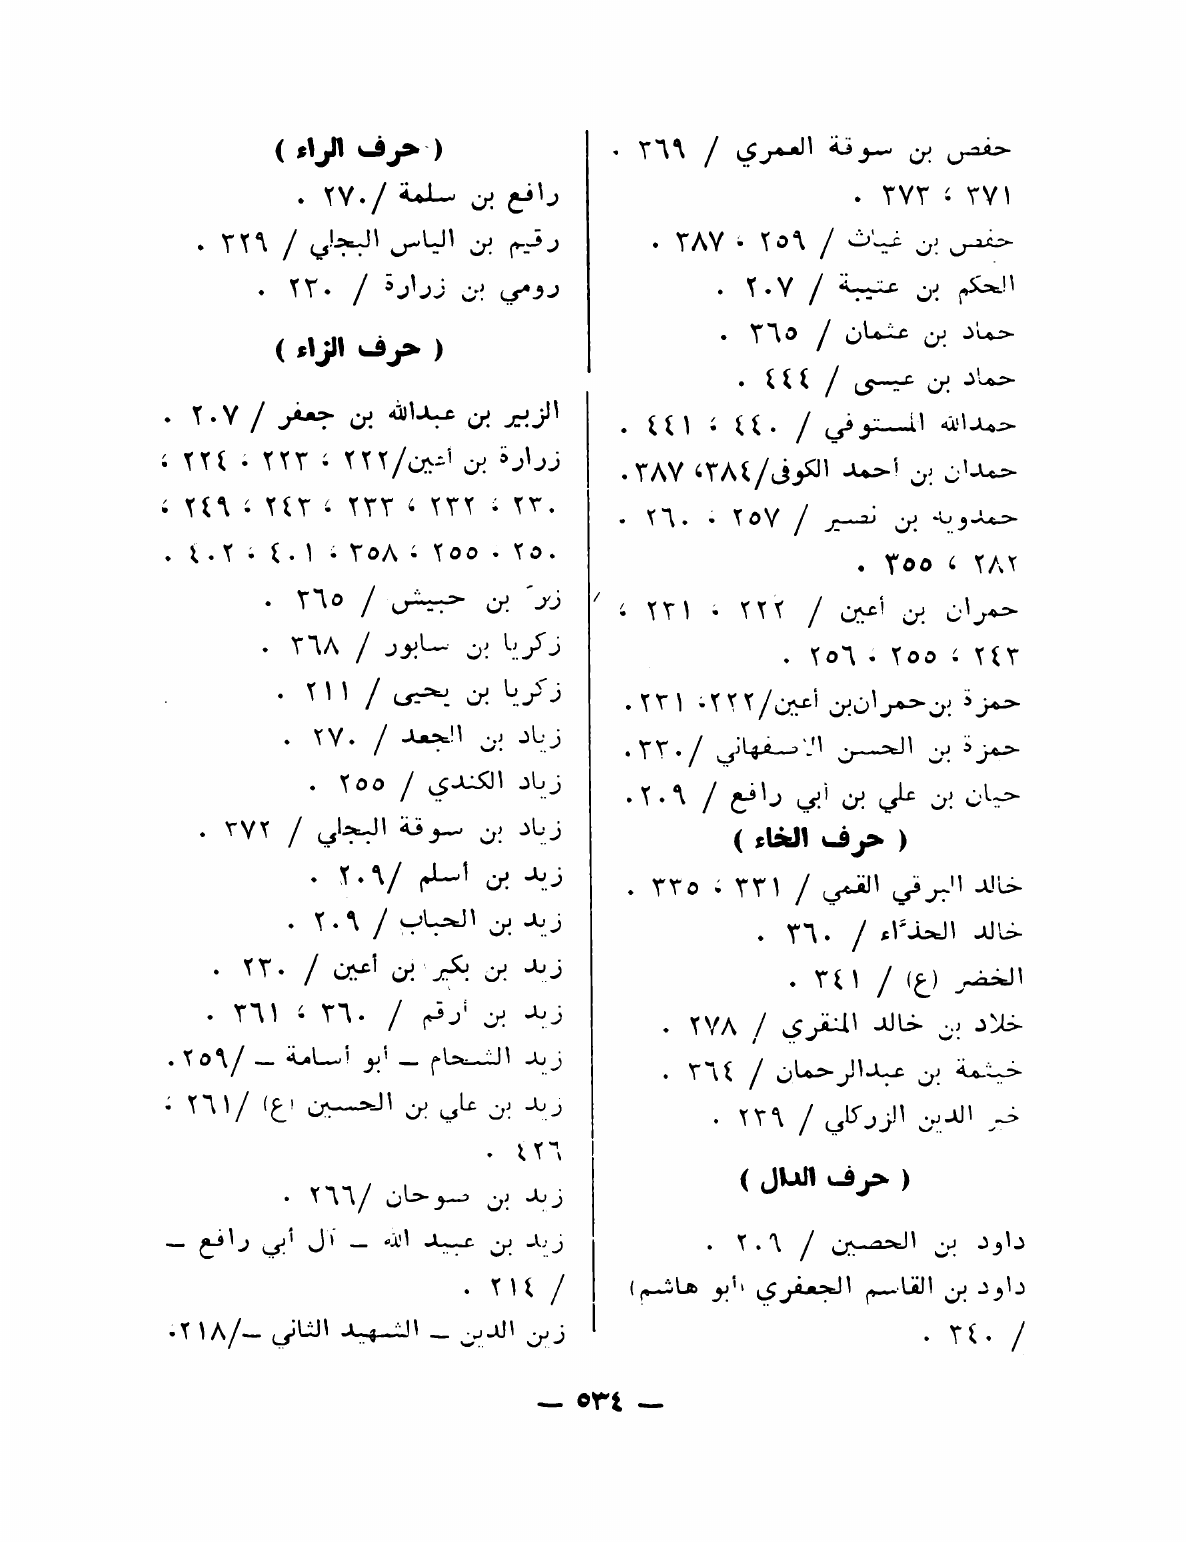 حفص بن سوقة العمري / ٣٦٩ .
٣٧١ ، ٣٧٣ .
حفص بن غياث / ٢٥٩ ، ٣٨٧ .
الحكم بن عتيبة / ٢٠٧ .
حماد بن عثمان / ٣٦٥ .
حماد بن عيسى / ٤٤٤ .
حمدالله المستوفي / ٤٤٠ ، ٤٤١ .
حمدان بن أحمد الكوفى/٣٨٤، ٣٨٧ .
حمدويه بن نصير / ٢٥٧ ، ٢٦٠ .
٢٨٢ ، ٣٥٥ .
حمران بن أعين / ٢٢٢ ، ٢٣١ ،
٢٤٣ ، ٢٥٥ ، ٢٥٦ .
حمزة بن حمران بن أعين/٢٢٢، ٢٣١ .
حمزة بن الحسن الاصفهاني /٢٣٠ .
حيان بن علي بن أبي رافع / ٢٠٩ .
( حرف الخاء )
خالد البرقي القمي / ٣٣١ ، ٣٣٥ .
خالد الحذّاء / ٣٦٠ .
الخضر (ع) / ٣٤١ .
خلاد بن خالد المنقري / ٢٧٨ .
خيثمة بن عبدالرحمان / ٣٦٤ .
خير الدين الزركلي / ٢٣٩ .
( حرف الدال )
داود بن الحصين / ٢٠٦ .
داود بن القاسم الجعفري (أبو هاشم)
/ ٣٤٠ .
( حرف الراء )
رافع بن سلمة /٢٧٠ .
رقيم بن الياس البجلي / ٣٢٩ .
رومي بن زرارة / ٢٣٠ .
( حرف الزاء )
الزبير بن عبدالله بن جعفر / ٢٠٧ .
زرارة بن أعين/٢٢٢ ، ٢٢٣ ، ٢٢٤ ،
٢٣٠ ، ٢٣٢ ، ٢٣٣ ، ٢٤٣ ، ٢٤٩ ،
٢٥٠ ، ٢٥٥ ، ٣٥٨ ، ٤٠١ ، ٤٠٢ .
زر بن حبيش / ٣٦٥ .
زكريا بن سابور / ٣٦٨ .
زكريا بن يحيى / ٢١١ .
زياد بن الجعد / ٢٧٠ .
زياد الكندي / ٢٥٥ .
زياد بن سوقة البجلي / ٣٧٢ .
زيد بن أسلم /٢٠٩ .
زيد بن الحباب / ٢٠٩ .
زيد بن بكير بن أعين / ٢٣٠ .
زيد بن أرقم / ٣٦٠ ، ٣٦١ .
زيد الشحام ــ أبو أسامة ــ /٢٥٩ .
زيد بن علي بن الحسين (ع) /٢٦١ ،
٤٢٦ .
زيد بن صوحان /٢٦٦ .
زيد بن عبيد الله ــ آل أبي رافع ــ
/ ٢١٤ .
زين الدين ــ الشهيد الثاني ــ/٢١٨ .
ــ ٥٣٤ ــ